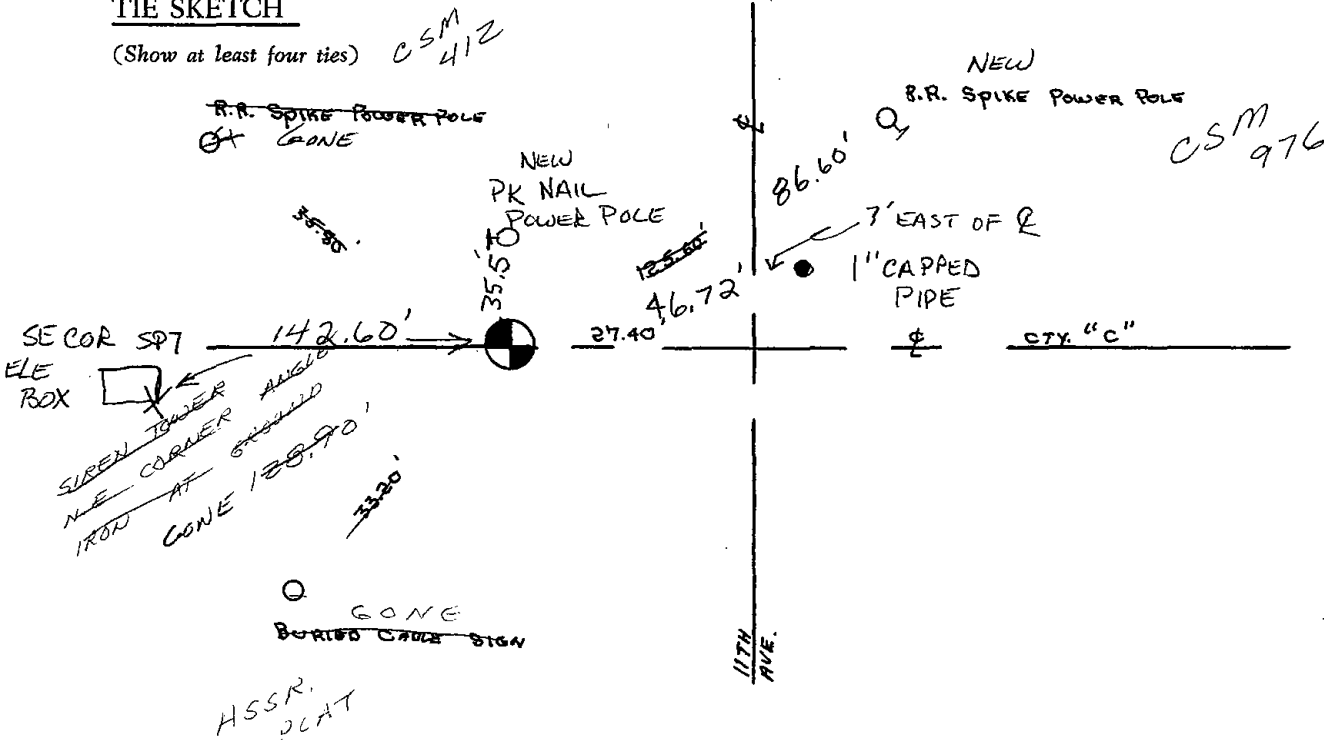 TIE SKETCH
(Show at least four ties)
CSM
412
R.R. SPIKE POWER POLE
GONE
NEW
R.R. SPIKE POWER POLE
CSM
976
NEW
PK NAIL
POWER POLE
35.80'
35.5'
125.60'
86.60'
46.72'
7' EAST OF ℄
1" CAPPED
PIPE
SE COR SP7
142.60'
27.40'
℄
℄
CTY. "C"
ELE
BOX
SIREN TOWER
N.E. CORNER ANGLE
IRON AT GROUND
GONE 128.90'
33.20'
GONE
BURIED CABLE SIGN
11TH
AVE.
HSSR.
PLAT